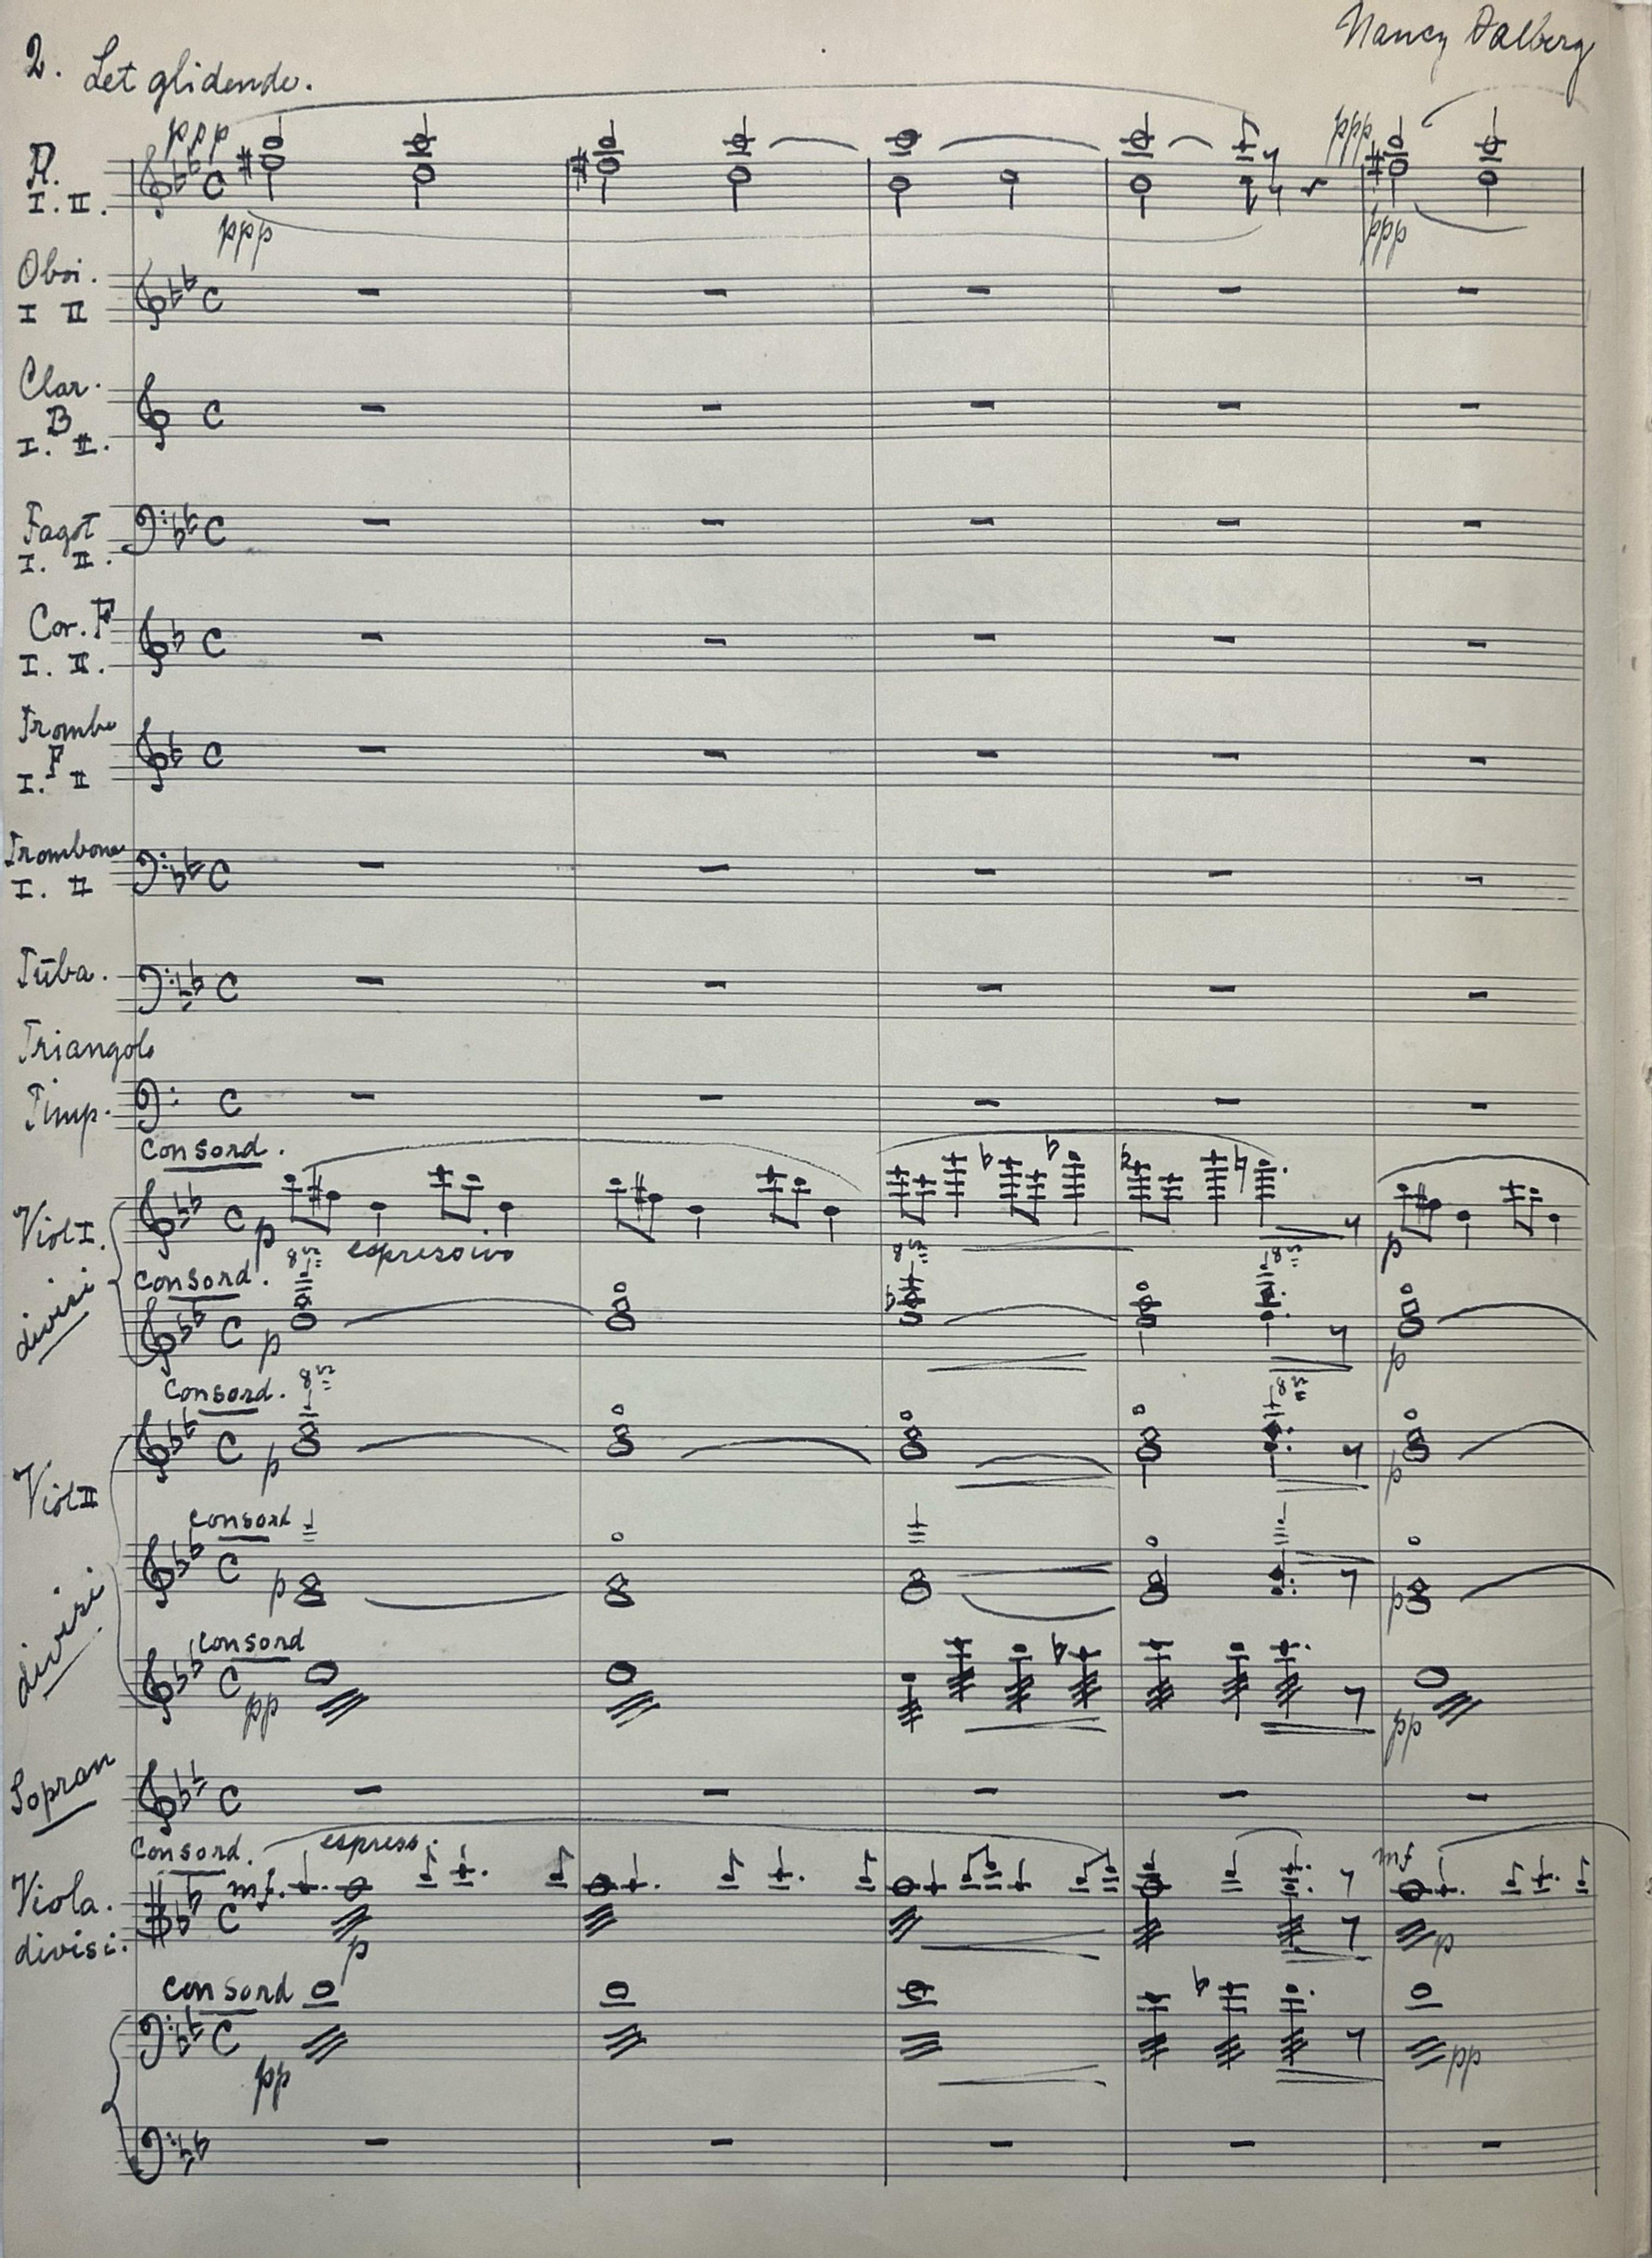 Nancy Dalberg
2. Let glidende.
ppp ppp
Fl.
I. II.
ppp ppp
Oboi.
I II
Clar.
B
I. II.
Fagot
I. II.
Cor. F
I. II.
Trombe
F
I. II
Trombone
I. II
Tuba.
Triangolo
Timp.
Con sord.
Viol I.
p espressivo p
8va 8va 8va
divisi
Con sord.
p p
Con sord. 8va 8va
Viol II
p p
Con sord
p p
divisi
Con sord
pp pp
Sopran
Con sord. espress. mf
Viola. mf.
divisi. p p
Con sord
pp pp